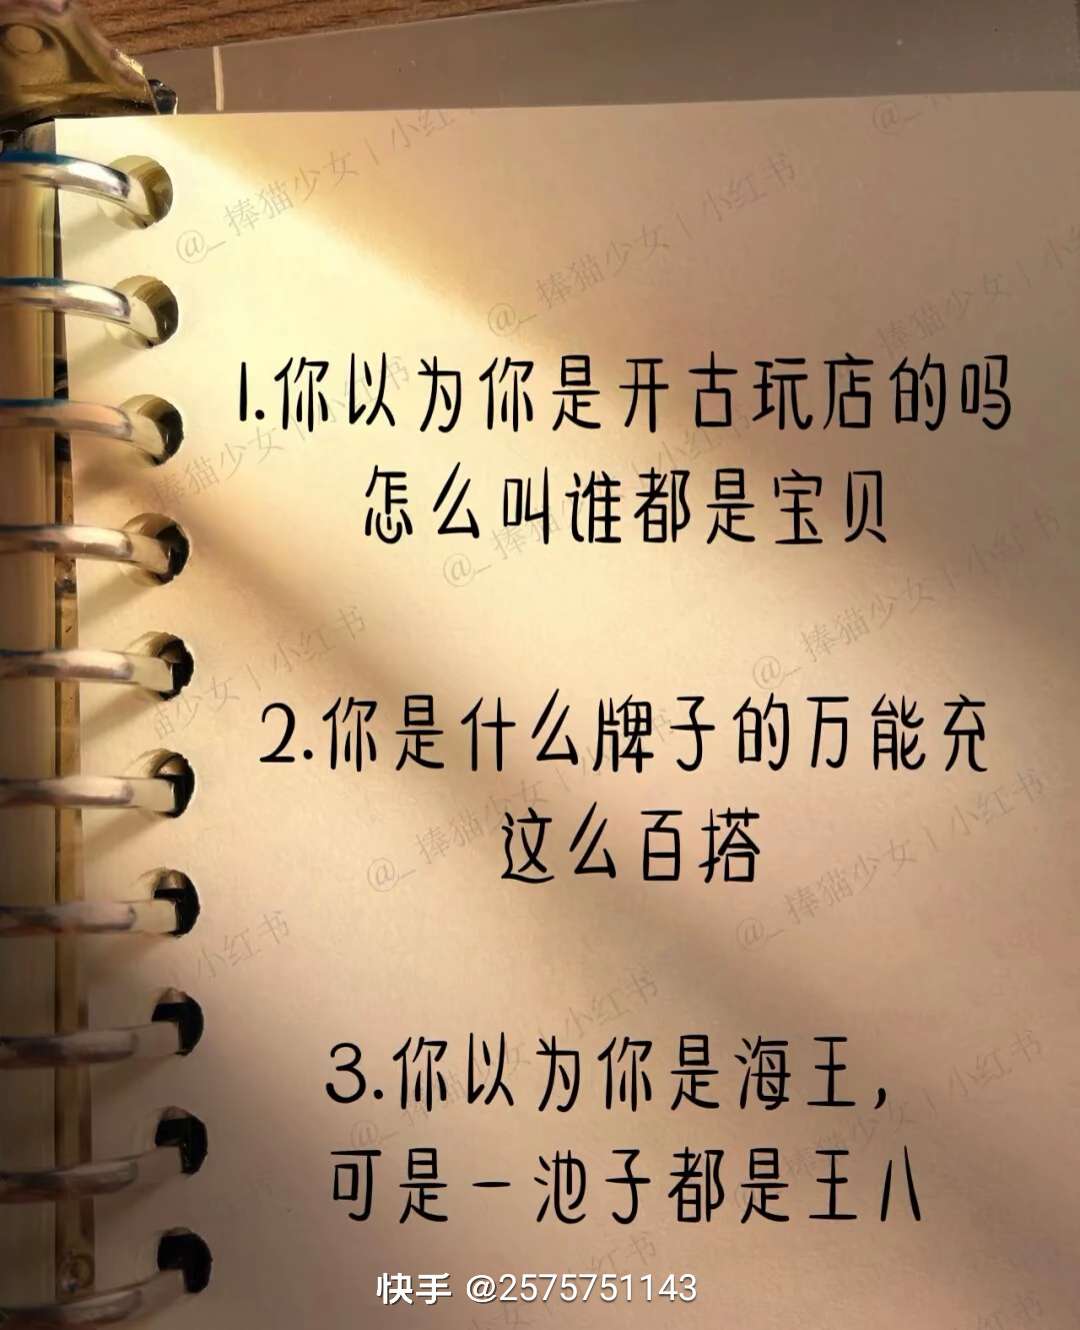 1.你以为你是开古玩店的吗
怎么叫谁都是宝贝
2.你是什么牌子的万能充
这么百搭
3.你以为你是海王，
可是一池子都是王八
快手 @2575751143
@_捧猫少女 | 小红书